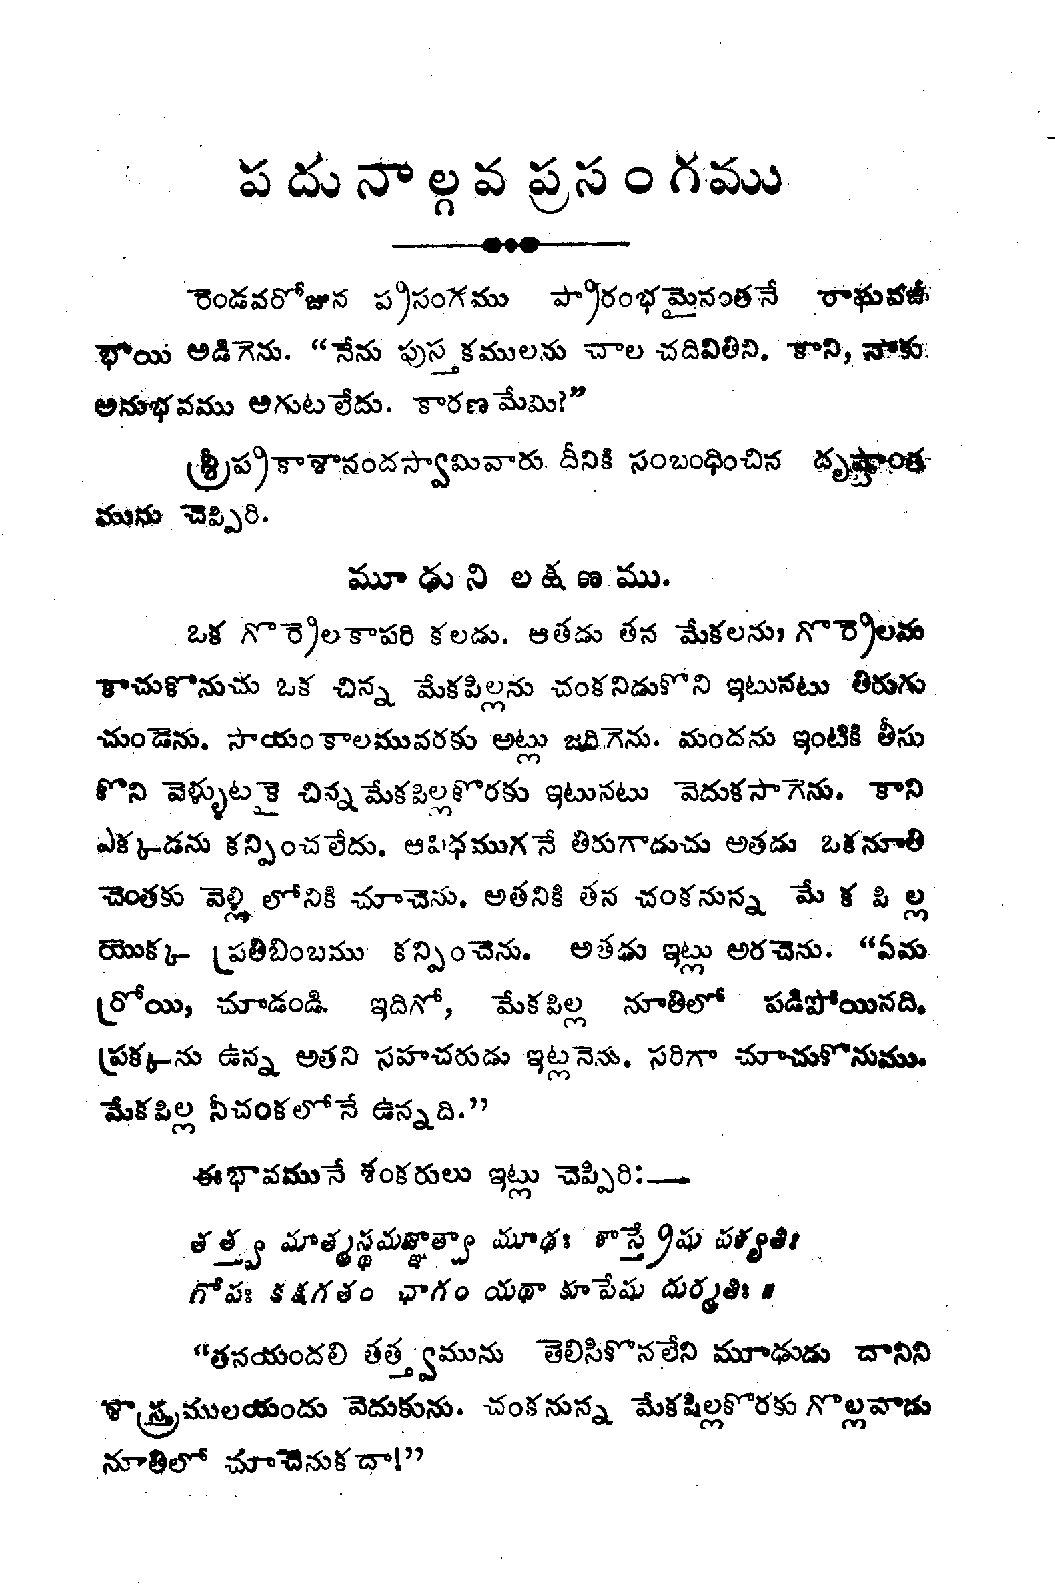 పదునాల్గవ ప్రసంగము
రెండవరోజున ప్రసంగము ప్రారంభమైనంతనే రాఘవజీ
భాయి అడిగెను. “నేను పుస్తకములను చాల చదివితిని. కాని, నాకు
అనుభవము అగుటలేదు. కారణమేమి?”
శ్రీప్రకాశానందస్వామివారు దీనికి సంబంధించిన దృష్టాంత
మును చెప్పిరి.
మూఢుని లక్షణము.
ఒక గొర్రెలకాపరి కలడు. ఆతడు తన మేకలను, గొర్రెలను
కాచుకొనుచు ఒక చిన్న మేకపిల్లను చంకనిడుకొని ఇటునటు తిరుగు
చుండెను. సాయంకాలమువరకు అట్లు జరిగెను. మందను ఇంటికి తీసు
కొని వెళ్ళుటకై చిన్నమేకపిల్లకొరకు ఇటునటు వెదుకసాగెను. కాని
ఎక్కడను కన్పించలేదు. ఆవిధముగనే తిరుగాడుచు అతడు ఒకనూతి
చెంతకు వెళ్లి లోనికి చూచెను. అతనికి తన చంకనున్న మేకపిల్ల
యొక్క ప్రతిబింబము కన్పించెను. అతడు ఇట్లు అరచెను. “ఏమ
ర్రోయి, చూడండి. ఇదిగో, మేకపిల్ల నూతిలో పడిపోయినది.
ప్రక్కను ఉన్న అతని సహచరుడు ఇట్లనెను. సరిగా చూచుకొనుము.
మేకపిల్ల నీచంకలోనే ఉన్నది.”
ఈభావమునే శంకరులు ఇట్లు చెప్పిరి:—
తత్త్వ మాత్మస్థమజ్ఞాత్వా మూఢః శాస్త్రేషు పశ్యతిః
గోపః కక్షగతం ఛాగం యథా కూపేషు దుర్మతిః ॥
“తనయందలి తత్త్వమును తెలిసికొనలేని మూఢుడు దానిని
శాస్త్రములయందు వెదుకును. చంకనున్న మేకపిల్లకొరకు గొల్లవాడు
నూతిలో చూచెనుకదా!”